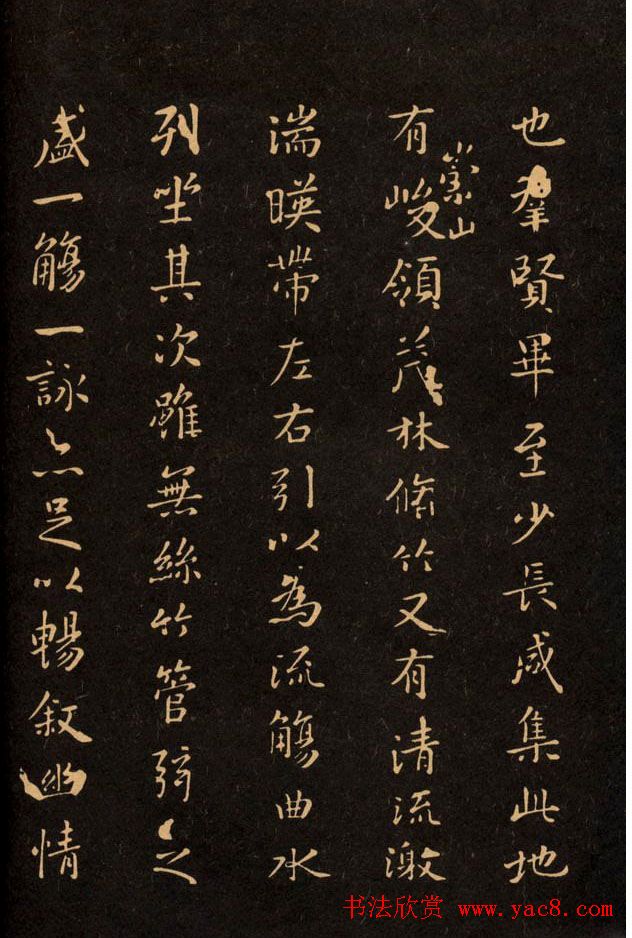 也羣賢畢至少長咸集此地
有崇山峻領茂林脩竹又有清流激
湍暎帶左右引以為流觴曲水
列坐其次雖無絲竹管弦之
盛一觴一詠亦足以暢叙幽情
书法欣赏 www.yac8.com